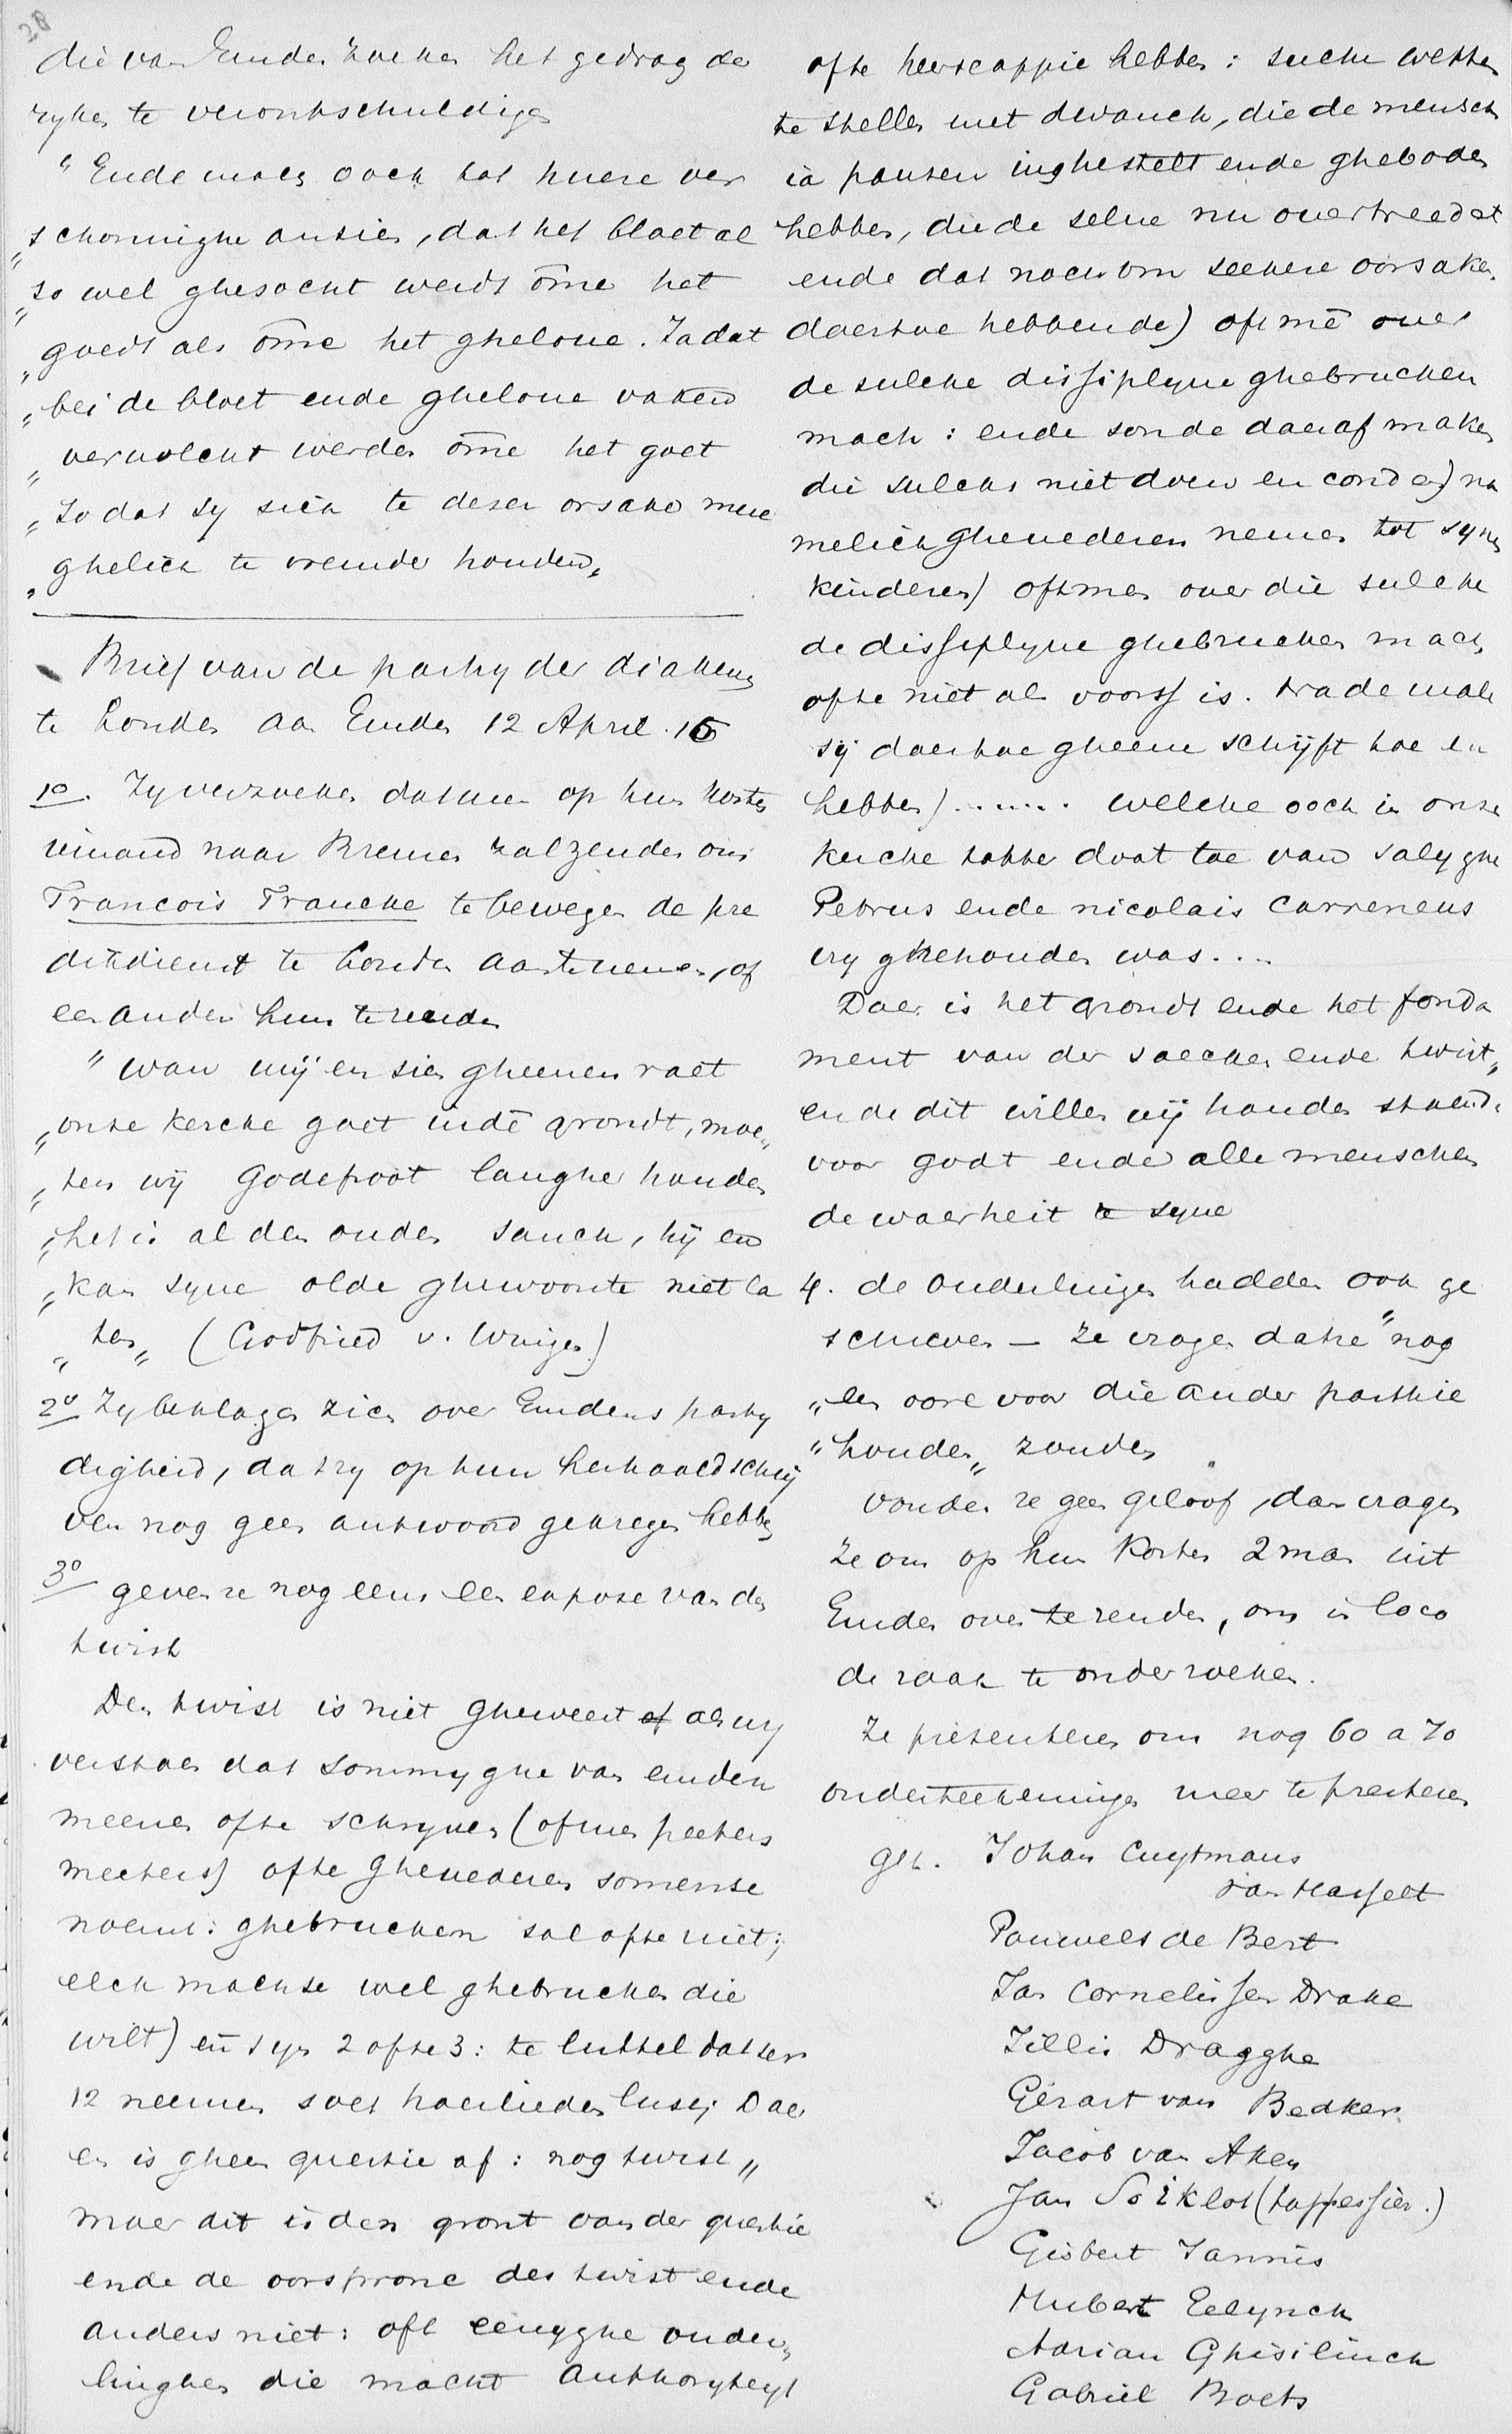 28
die van Emden zoeken het gedrag der
rijken te verontschuldigen
"Ende moeg oock tot huere ver
"schoninghe ansien, dat het bloet al
"so wel ghesocht werdt ōme het
"goedt als ōme het ghelove. Ja dat
"beide bloet ende ghelove vaken
"vervolcht werden ōme het goet
"so dat sy sick te deser orsake mere
"ghelick te vrende houden"
Brief van de partij der diakens
te Londen aan Emden 12 April. 15
1o. Zy verzoeken dat men op hun kosten
iemand naar Bremen zal zenden om
Francois Francke te bewegen de pre
dikdienst te Londen aan te nemen, of
een ander hun te zenden
"want wij en sien gheenen raet
"onse kercke gaet indē grondt, moe,
"ten wij Godefroot langher houden
"het is al den ouden sanck, hij en
"kan syne olde ghewoonte niet la
"ten" (Godfried v. Wingen)
2o Zy beklagen zich over Emdens party
digheid, dat zy op hun herhaald schrij
ven nog geen antwoord gekregen hebben
3o geven ze nog eens een expose van den
twist
Den twist is niet gheweest of als wy
verstaen dat sommyghe van emden
meenen ofte schryven (ofmen peeters
meeters) ofte ghevederen somense
noemt: ghebrucken sal ofte niet;
elck machse wel ghebrucken die
wilt) eñ syn 2 ofte 3: te luttel datser
12 neemen soet haerlieden lust; Daer
en is gheen questie af: nog twist"
maer dit is den gront van der questie
ende de oorspronc des twist ende
anders niet: oft eenyghe ouder,
linghen die macht authoryteyt
ofte heerscappie hebben: sulcke wetten
te stellen met dwanck, die de mensch
ia pausen inghestelt ende gheboden
hebben, die de selve nu overtreedet
ende dat noch om seekere oorsaken
daertoe hebbende) ofmē over
de sulcke dissiplyne ghebrucken
mach: ende sonde daeraf maken
die sulckx niet doen en conden) na
melick ghevederen nemen tot syne
kinderen) oftmen over die sulcke
de dissiplyne ghebrucken mach
ofte niet als voorss is. nademale
sij daertoe gheene schrijft toe en
hebben)...... welcke ooch in onse
kercke totter doot toe van salyghe
Petrus ende nicolais Carreneus
vry ghehouden was...
Daer is het grondt ende het fonda
ment van der saecken ende twist"
ende dit willen wij houden staende
voor godt ende alle menschen
de waerheit te syne
4. de Ouderlingen hadden ook ge
schreven — ze vragen dat ze "nog
"een oore voor die ander parthie
"houden" zouden
vonden ze geen geloof, dan vragen
ze om op hun kosten 2 man uit
Emden over te zenden, om in loco
de zaak te onderzoeken.
Ze presenteren om nog 60 a 70
onderteekeningen meer te presteren
get. Johan Cuytmans
van Hasselt
Pauwels de Bert
Jan Cornelissen Drake
Jillis Dragghe
Gerart van Bedker
Jacob van Aken
Jan Soiklot (tappessier.)
Gisbert Jannis
Hubert Eelynck
Adrian Ghisilinck
Gabriel Boets